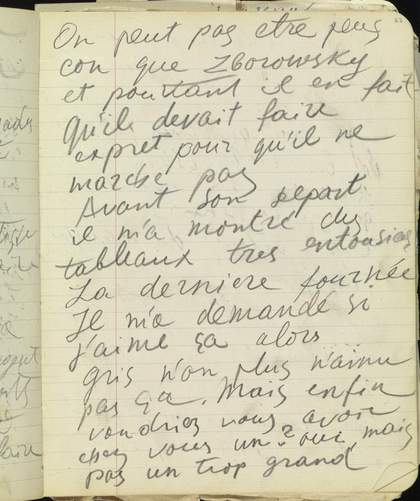 On peut pas etre plus
con que Zborowsky
et pourtant il en fait
qu'il devait faire
expret pour qu'il ne
marche pas
Avant son depart
il m'a montré des
tableaux tres entousias
La derniere fournée
Il m'a demandé si
j'aime ça alors
gris n'on plus n'aime
pas ça. Mais enfin
voudriez vous avoir
chez vous un mais
pas un trop grand